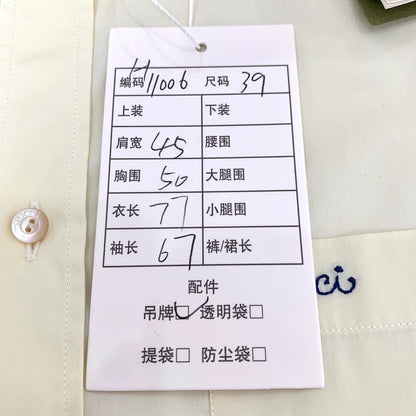 编码 H11006 尺码 39
上装 下装
肩宽 45 腰围
胸围 50 大腿围
衣长 77 小腿围
袖长 67 裤/裙长
配件
吊牌☑ 透明袋□
提袋□ 防尘袋□
ci